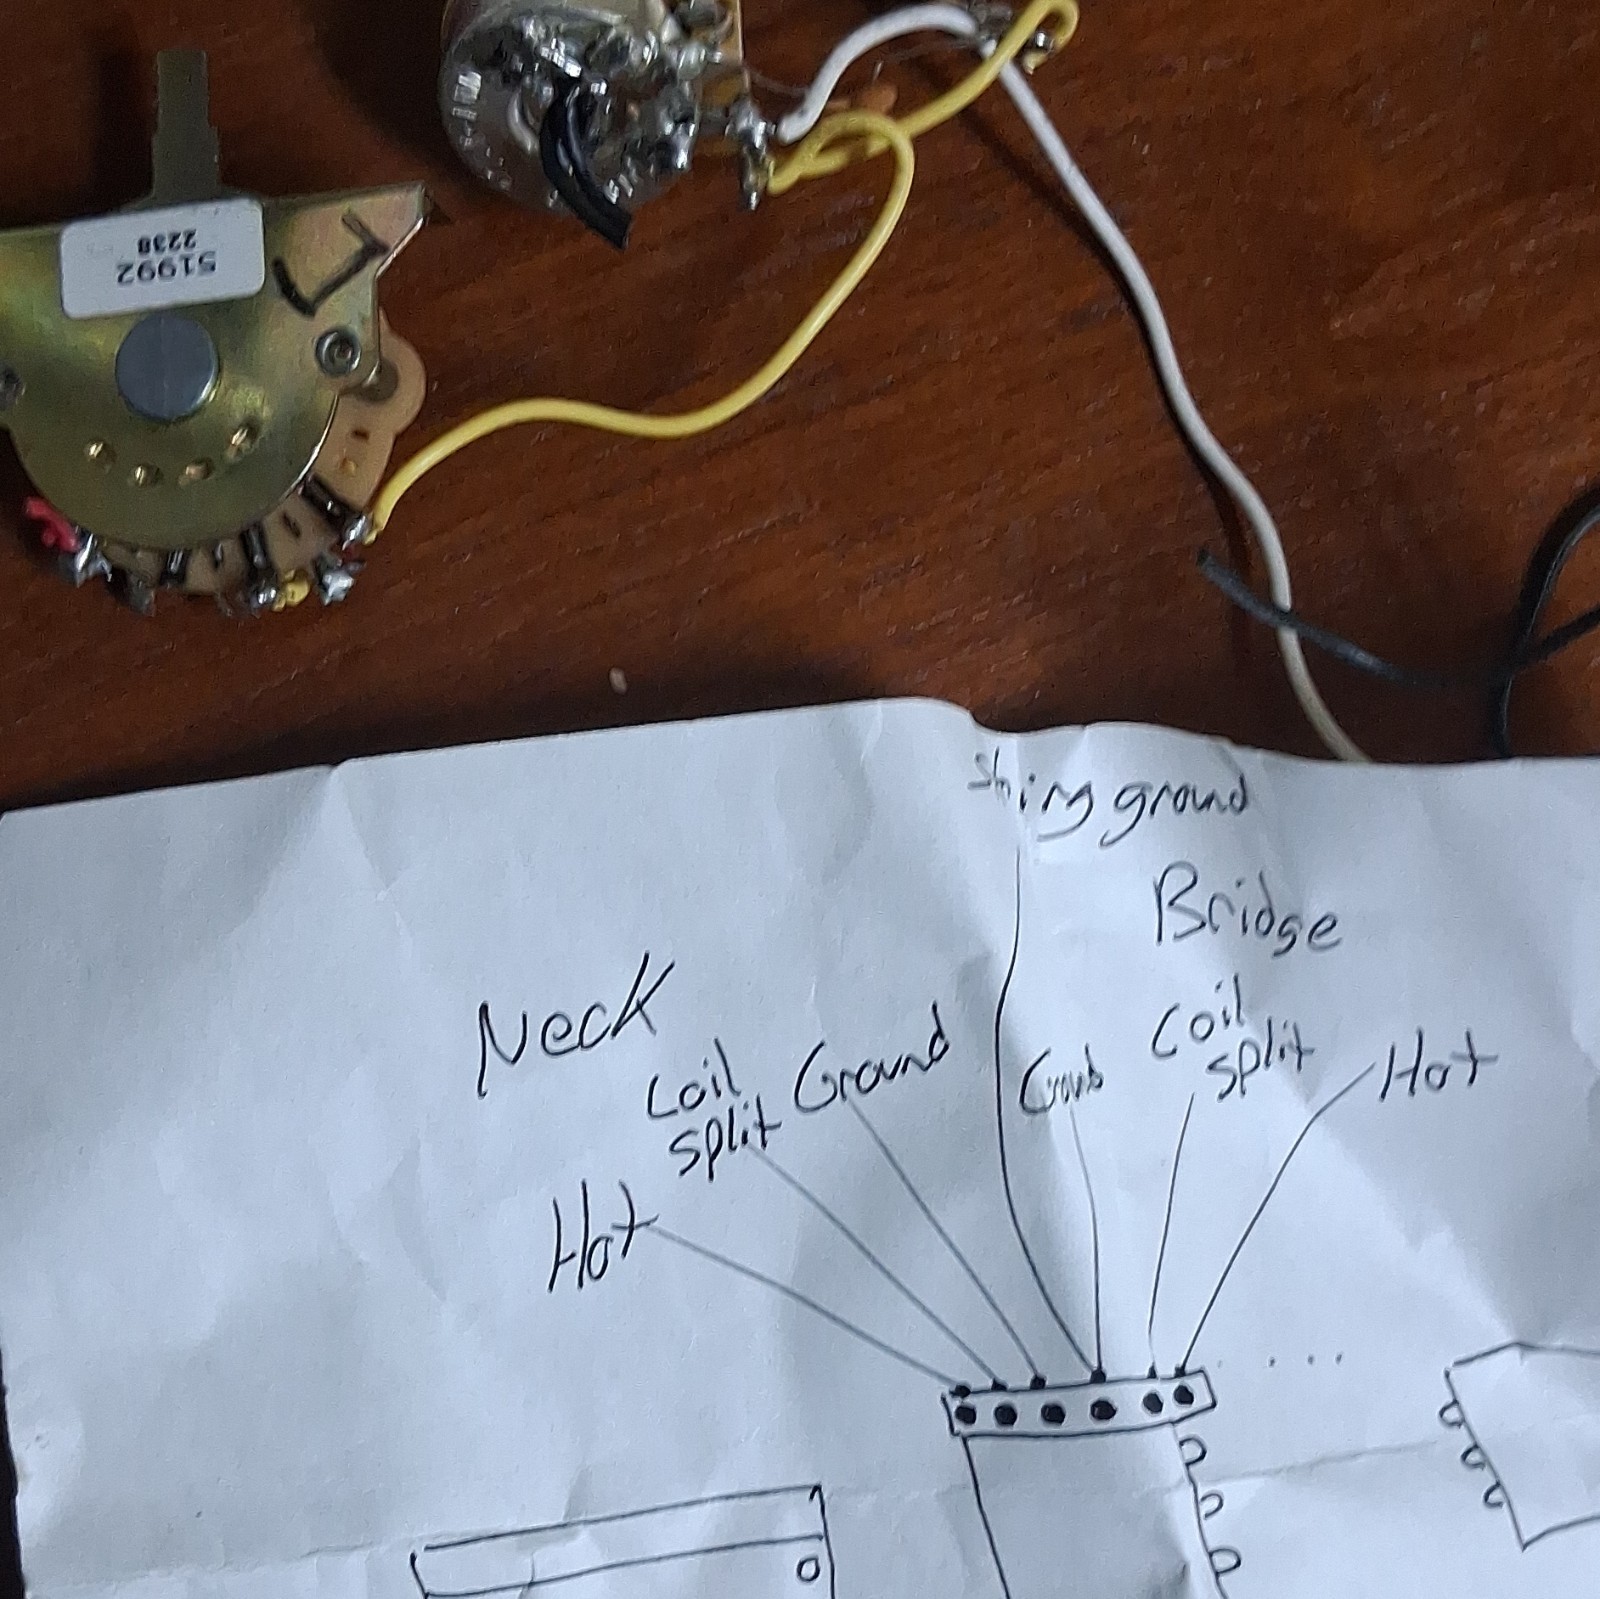 51992
2238
String ground
Bridge
Neck
Coil
split
Ground
Ground
Coil
split
Hot
Hot